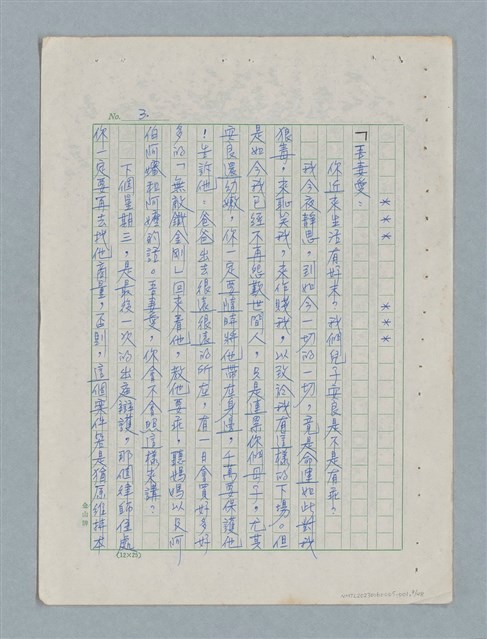 No. 3
＊＊＊　＊＊＊
「吾妻愛：
你近來生活有好來？我們兒子安良是不是有乖？
我今夜靜思，到如今一切的一切，竟是命運如此對我
狠毒，來恥笑我，來作賤我，以致於我有這樣的下場。但
是如今我已經不再怨歎世間人，只是連累你們母子，尤其
安良還幼嫩，你一定要隨時將他帶在身邊，千萬要保護他
！告訴他：爸爸出去很遠很遠的所在，有一日會買好多好
多的「無敵鐵金剛」回來看他，教他要乖，聽媽媽以及阿
伯阿嬸和阿嬤的話。吾妻愛，你會不會照這樣來講？
下個星期三，是最後一次的出庭辯護，那個律師住處
你一定要再去找他商量，否則，這個案件若是猶原維持本
金山牌
(12×25)